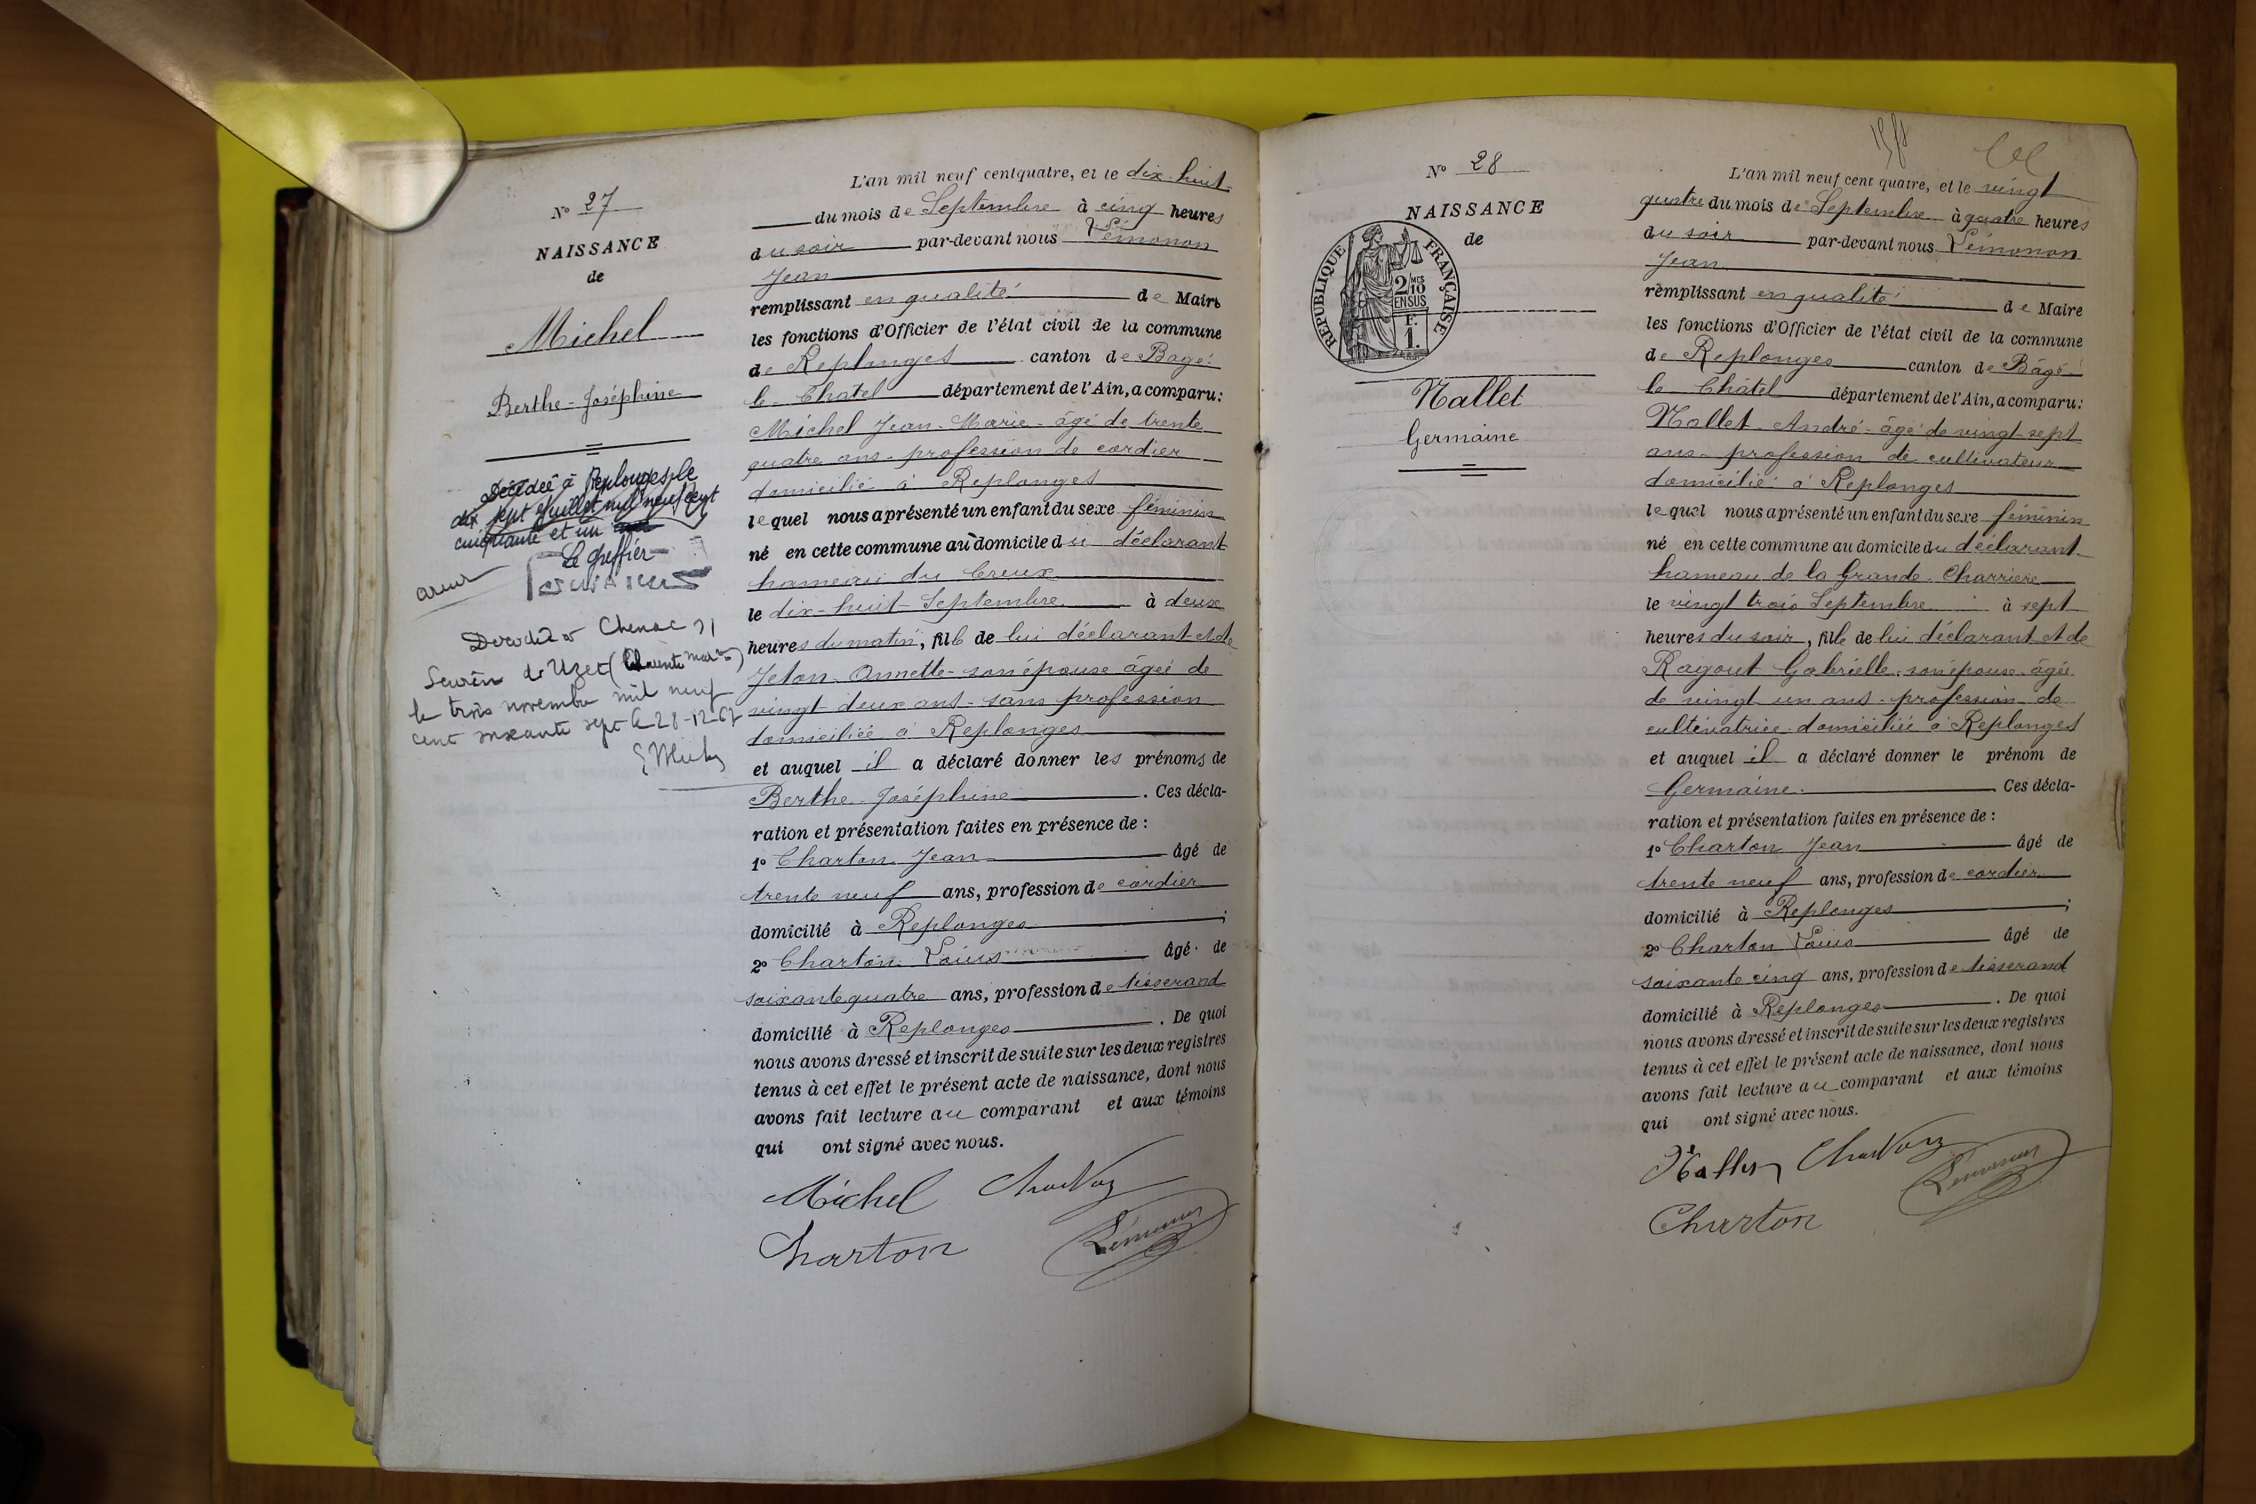 N° 27
NAISSANCE
de
Michel
Berthe-Joséphine
Décédée à Replonges le
dix sept Juillet mil neuf cent
cinquante et un
Le Greffier
Decedée à Chenac St
Seurin d'Uzet (Charente Marme)
le trois novembre mil neuf
cent soixante sept le 28-12-67
L'an mil neuf cent quatre, et le dix-huit
du mois de Septembre à cinq heures
du soir par-devant nous Lémonon
Jean
remplissant en qualité de Maire
les fonctions d'Officier de l'état civil de la commune
de Replonges canton de Bagé
le Chatel département de l'Ain, a comparu:
Michel Jean-Marie-âgé de trente
quatre ans-profession de cordier
domicilié à Replonges
lequel nous a présenté un enfant du sexe féminin
né en cette commune au domicile du déclarant
hameau du Creux
le dix-huit Septembre à deux
heures du matin, fille de lui déclarant et de
Jeton Annette-son épouse âgée de
vingt deux ans-sans profession
domiciliée à Replonges
et auquel il a déclaré donner les prénoms de
Berthe-Joséphine. Ces décla-
ration et présentation faites en présence de :
1° Charton Jean âgé de
trente neuf ans, profession de cordier
domicilié à Replonges ;
2° Charton Louis âgé de
soixante quatre ans, profession de tisserand
domicilié à Replonges. De quoi
nous avons dressé et inscrit de suite sur les deux registres
tenus à cet effet le présent acte de naissance, dont nous
avons fait lecture au comparant et aux témoins
qui ont signé avec nous.
Michel
Charton
Lémonon
N° 28
NAISSANCE
de
REPUBLIQUE FRANÇAISE
2/10
EN SUS
F.
1.
Nallet
Germaine
L'an mil neuf cent quatre, et le vingt
quatre du mois de Septembre à quatre heures
du soir par-devant nous Lémonon
Jean
remplissant en qualité de Maire
les fonctions d'Officier de l'état civil de la commune
de Replonges canton de Bâgé
le Châtel département de l'Ain, a comparu:
Nallet André-âgé de vingt-sept
ans-profession de cultivateur
domicilié à Replonges
lequel nous a présenté un enfant du sexe féminin
né en cette commune au domicile du déclarant
hameau de la Grande Charriere
le vingt trois Septembre à sept
heures du soir, fille de lui déclarant et de
Ragout Gabrielle-son épouse-âgée
de vingt un ans-profession de
cultivatrice-domiciliée à Replonges
et auquel il a déclaré donner le prénom de
Germaine. Ces décla-
ration et présentation faites en présence de :
1° Charton Jean âgé de
trente neuf ans, profession de cordier
domicilié à Replonges ;
2° Charton Louis âgé de
soixante cinq ans, profession de tisserand
domicilié à Replonges. De quoi
nous avons dressé et inscrit de suite sur les deux registres
tenus à cet effet le présent acte de naissance, dont nous
avons fait lecture au comparant et aux témoins
qui ont signé avec nous.
Nallet
Lémonon
Charton